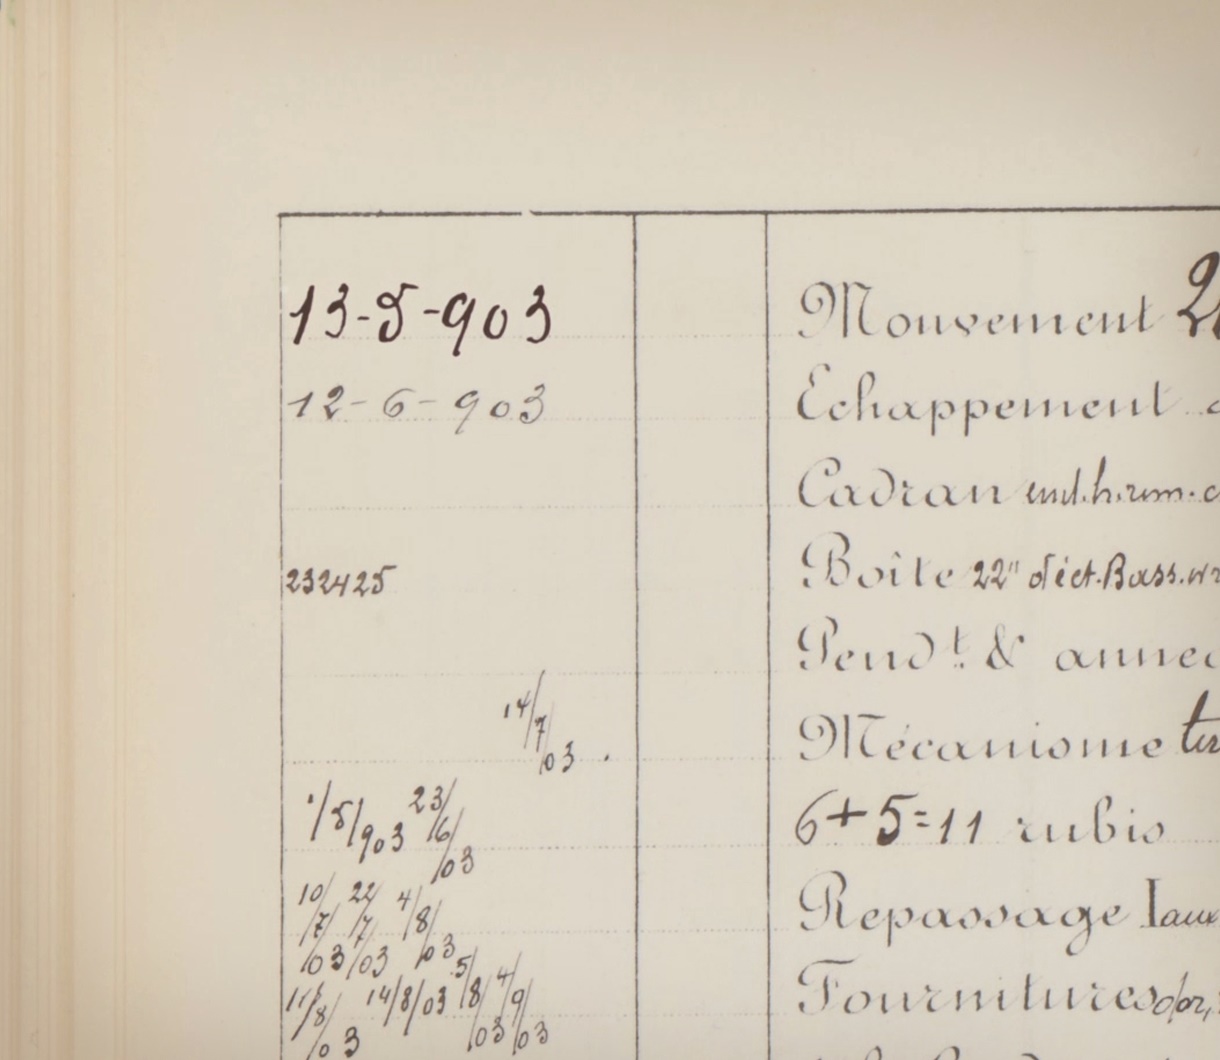 13-5-903 Mouvement
12-6-903 Echappement
Cadran eml.h.rom.
232425 Boîte 22''' Bass.
Pend.t &
14/7/03. Mécanisme
1/5/903 23/6/03 6+5=11 rubis
10/7/03 22/7/03 4/8/03 Repassage
11/8/03 14/8/03 5/8/03 4/9/03 Fournitures